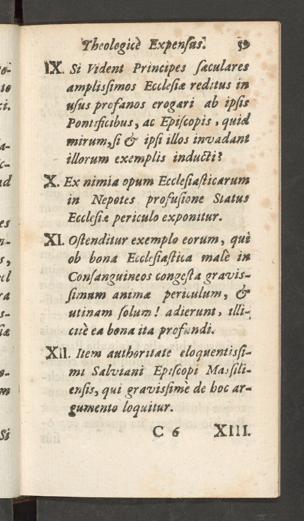 Theologicè Expensus. 59
IX. Si Vident Principes sæculares
amplissimos Ecclesiæ reditus in
usus profanos erogari ab ipsis
Pontificibus, ac Episcopis, quid
mirum, si & ipsi illos invadant
illorum exemplis inducti?
X. Ex nimia opum Ecclesiasticarum
in Nepotes profusione Status
Ecclesiæ periculo exponitur.
XI. Ostenditur exemplo eorum, qui
ob bona Ecclesiastica malè in
Consanguineos congesta gravis-
simum animæ periculum, &
utinam solum! adierunt, illi-
citè ea bona ita profundi.
XII. Item authoritate eloquentissi-
mi Salviani Episcopi Massili-
ensis, qui gravissimè de hoc ar-
gumento loquitur.
C 6 XIII.